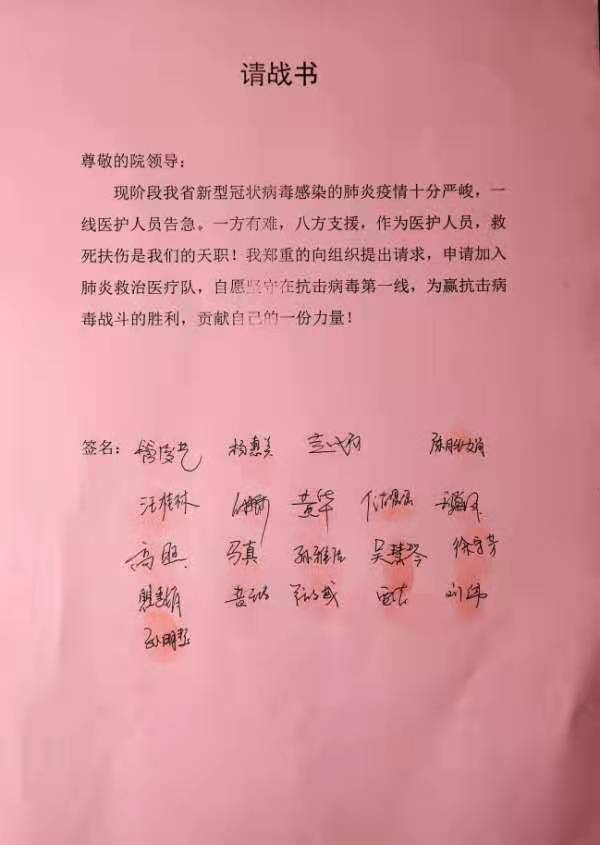 请战书
尊敬的院领导：
现阶段我省新型冠状病毒感染的肺炎疫情十分严峻，一
线医护人员告急。一方有难，八方支援，作为医护人员，救
死扶伤是我们的天职！我郑重的向组织提出请求，申请加入
肺炎救治医疗队，自愿坚守在抗击病毒第一线，为赢抗击病
毒战斗的胜利，贡献自己的一份力量！
签名： 杨惠美
汪桂林 黄华
高照 马真 孙雅洁 吴慧琴
刘伟